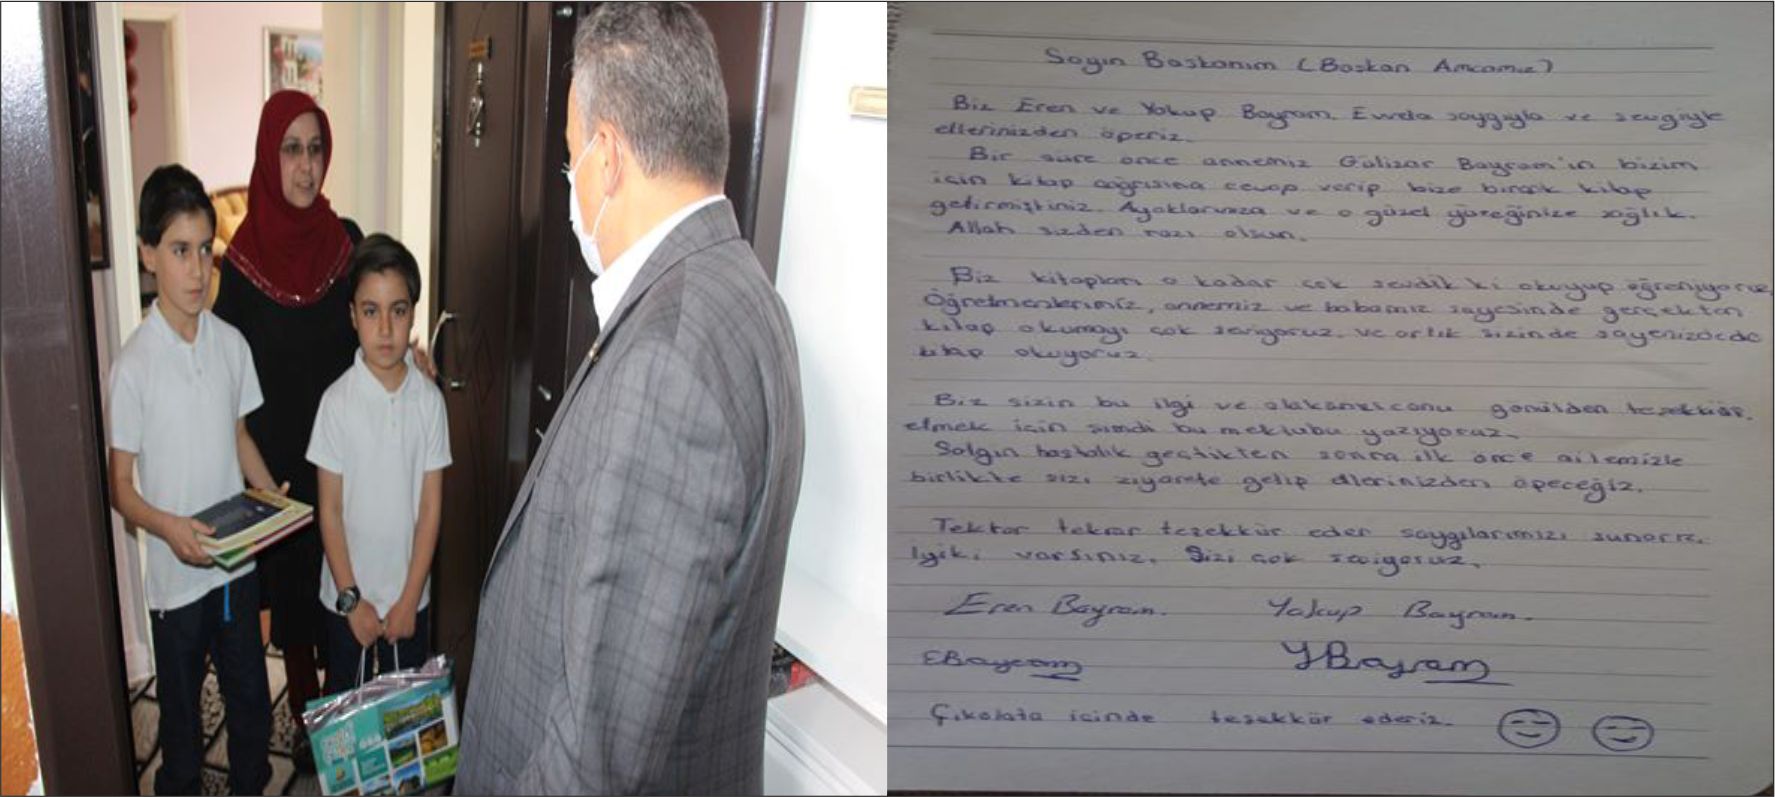 Sayın Başkanım (Başkan Amcamız)
Biz Eren ve Yakup Bayram. Evvela saygıyla ve sevgiyle
ellerinizden öperiz.
Bir süre önce annemiz Gülizar Bayram'ın bizim
için kitap çağrısına cevap verip bize birçok kitap
getirmiştiniz. Ayaklarınıza ve o güzel yüreğinize sağlık.
Allah sizden razı olsun.
Biz kitapları o kadar çok sevdik ki okuyup öğreniyoruz.
Öğretmenlerimiz, annemiz ve babamız sayesinde gerçekten
kitap okumayı çok seviyoruz. ve artık sizinde sayenizde
kitap okuyoruz.
Biz sizin bu ilgi ve gönülden teşekkür
etmek için şimdi bu mektubu yazıyoruz.
Salgın hastalık geçtikten sonra ilk önce ailemizle
birlikte sizi ziyarete gelip ellerinizden öpeceğiz.
Tektar tekrar teşekkür eder saygılarımızı sunarız.
İyiki varsınız. Sizi çok seviyoruz.
Eren Bayram. Yakup Bayram.
EBayram YBayram
Çikolata içinde teşekkür ederiz.